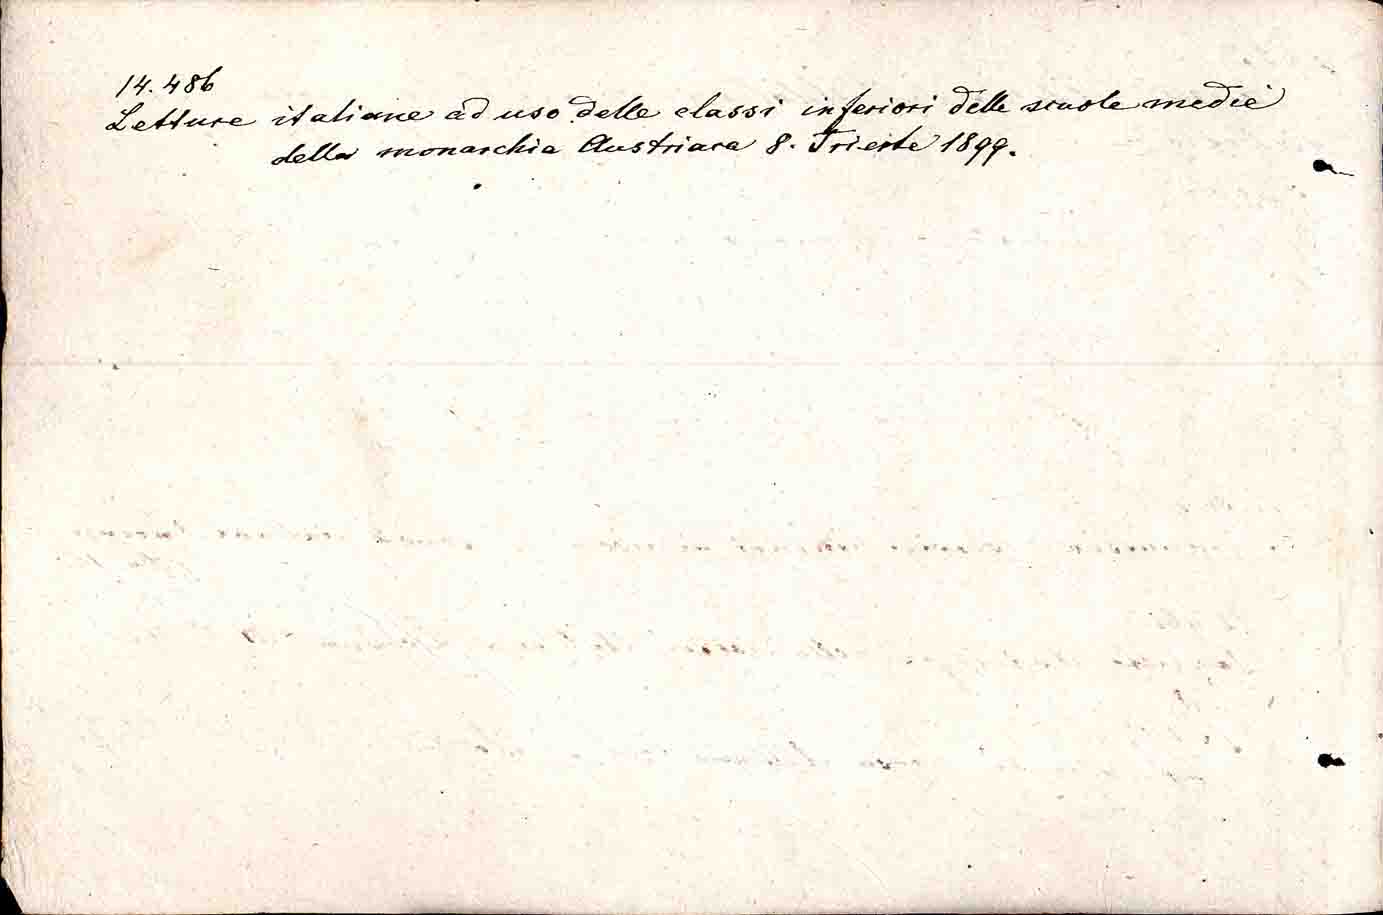 14.486
Letture italiane ad uso delle classi inferiori delle scuole medie
della monarchia Austriaca 8. Trieste 1899.